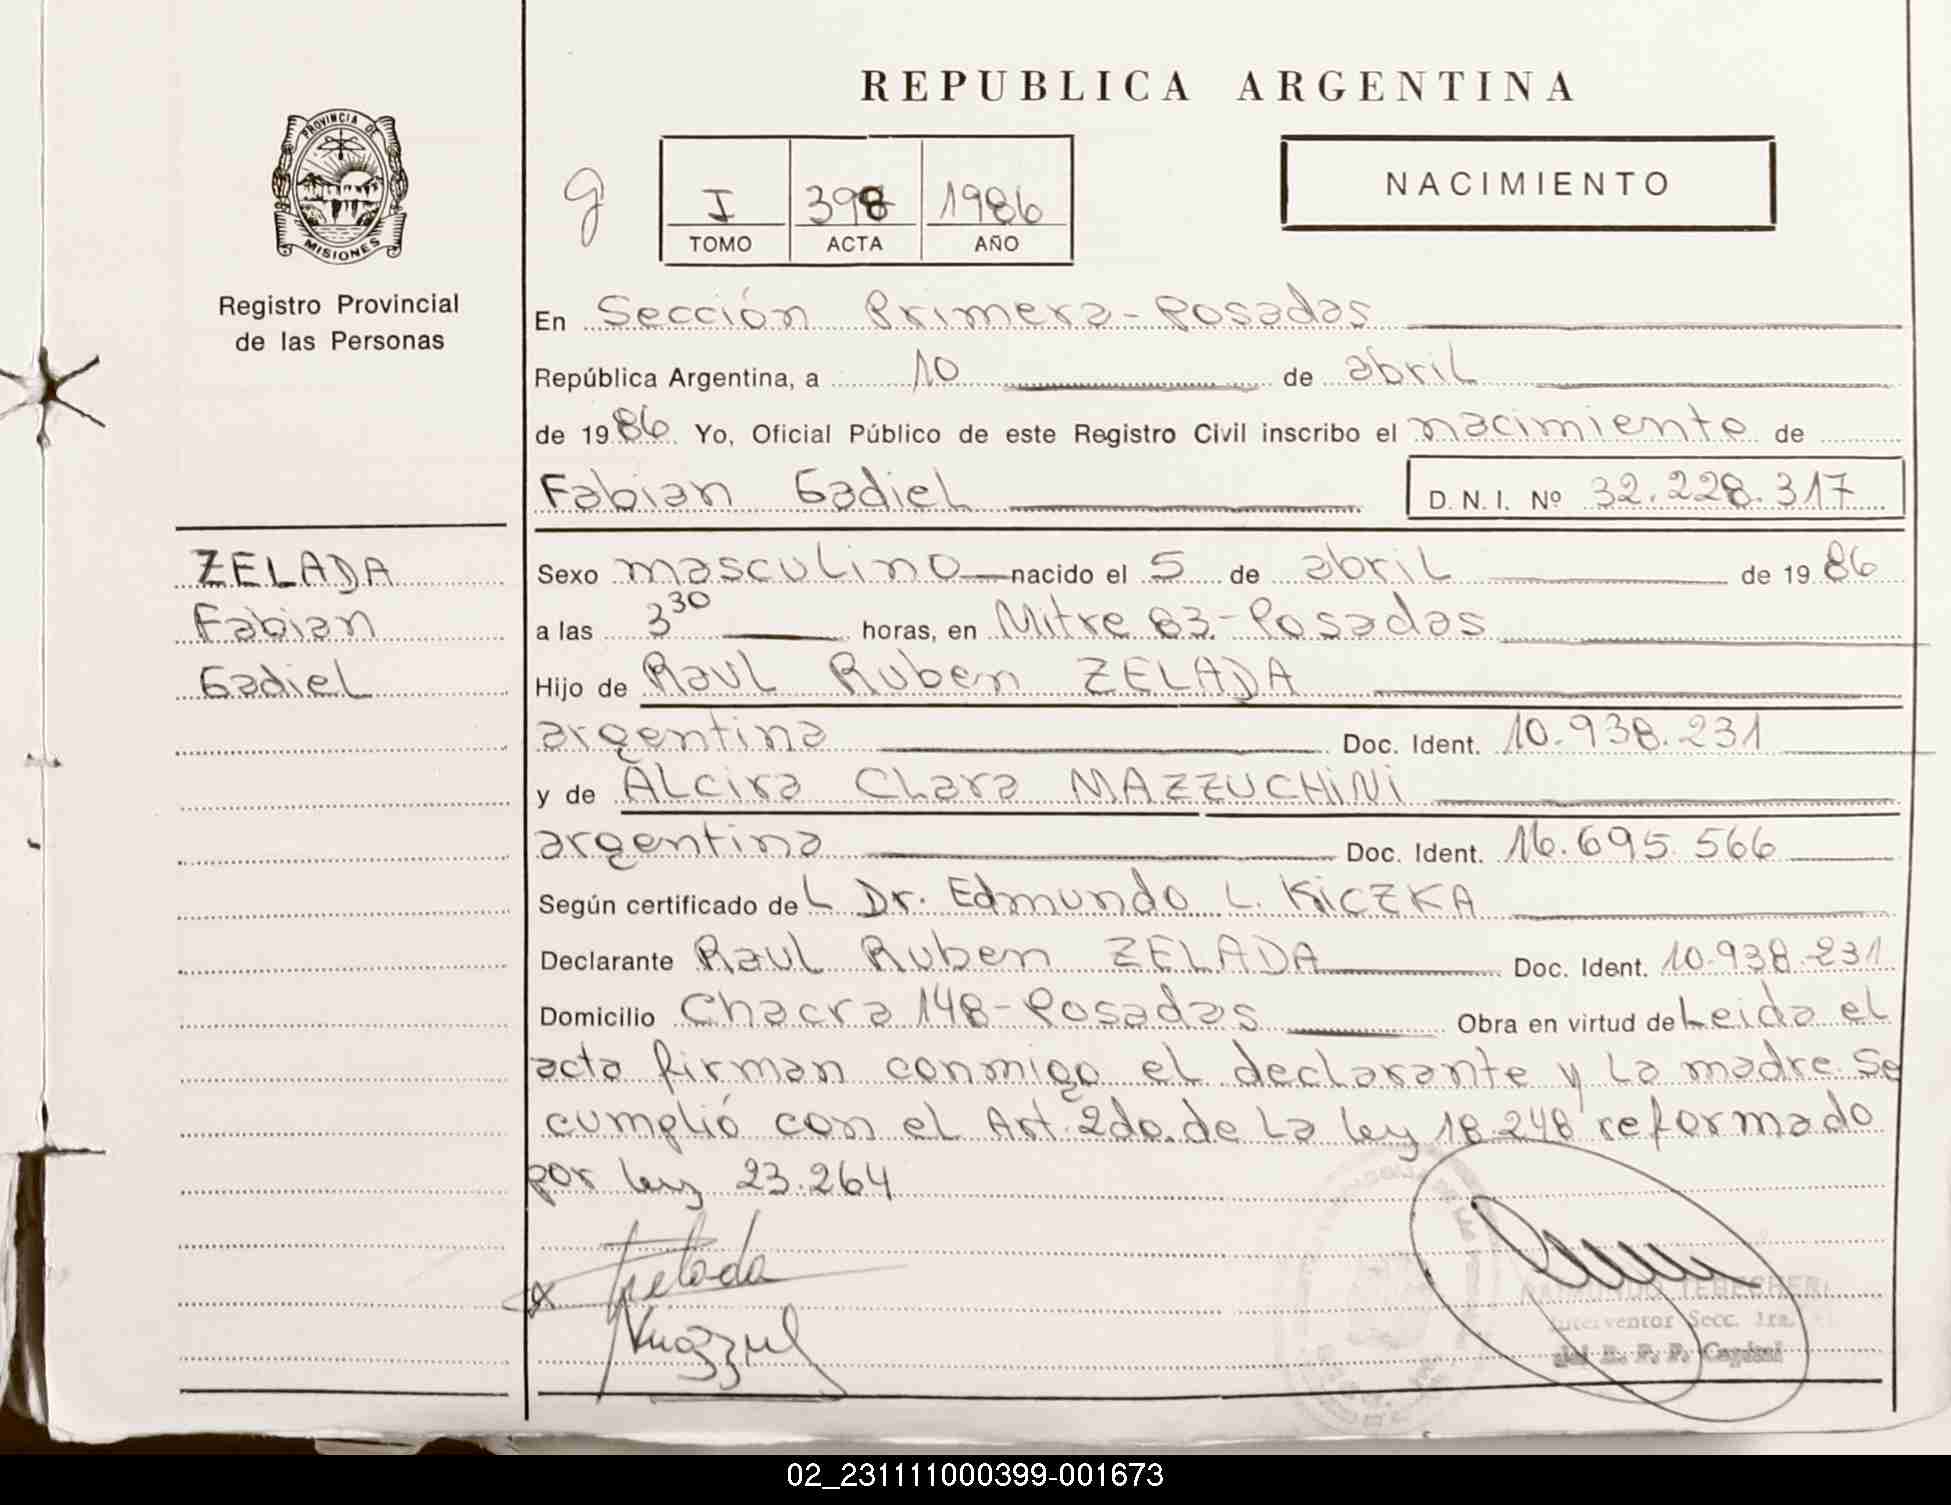 REPUBLICA ARGENTINA
PROVINCIA DE
MISIONES
Registro Provincial
de las Personas
g
I 398 1986
TOMO ACTA AÑO
NACIMIENTO
En Sección Primera-Posadas
República Argentina, a 10 de abril
de 1986 Yo, Oficial Público de este Registro Civil inscribo el nacimiento de
Fabian Gadiel D.N.I. Nº 32.228.317
ZELADA
Fabian
Gadiel
Sexo masculino nacido el 5 de abril de 1986
a las 3 30 horas, en Mitre 83-Posadas
Hijo de Raul Ruben ZELADA
argentina Doc. Ident. 10.938.231
y de Alcira Clara MAZZUCHINI
argentina Doc. Ident. 16.695.566
Según certificado del Dr. Edmundo L. KICZKA
Declarante Raul Ruben ZELADA Doc. Ident. 10.938.231
Domicilio Chacra 148-Posadas Obra en virtud de Leida el
acta firman conmigo el declarante y la madre. Se
cumplió con el Art. 2do. de la ley 18.248 reformado
por ley 23.264
x Zelada
Interventor Secc. 1ra.
del R. P. P. Capital
02_231111000399-001673